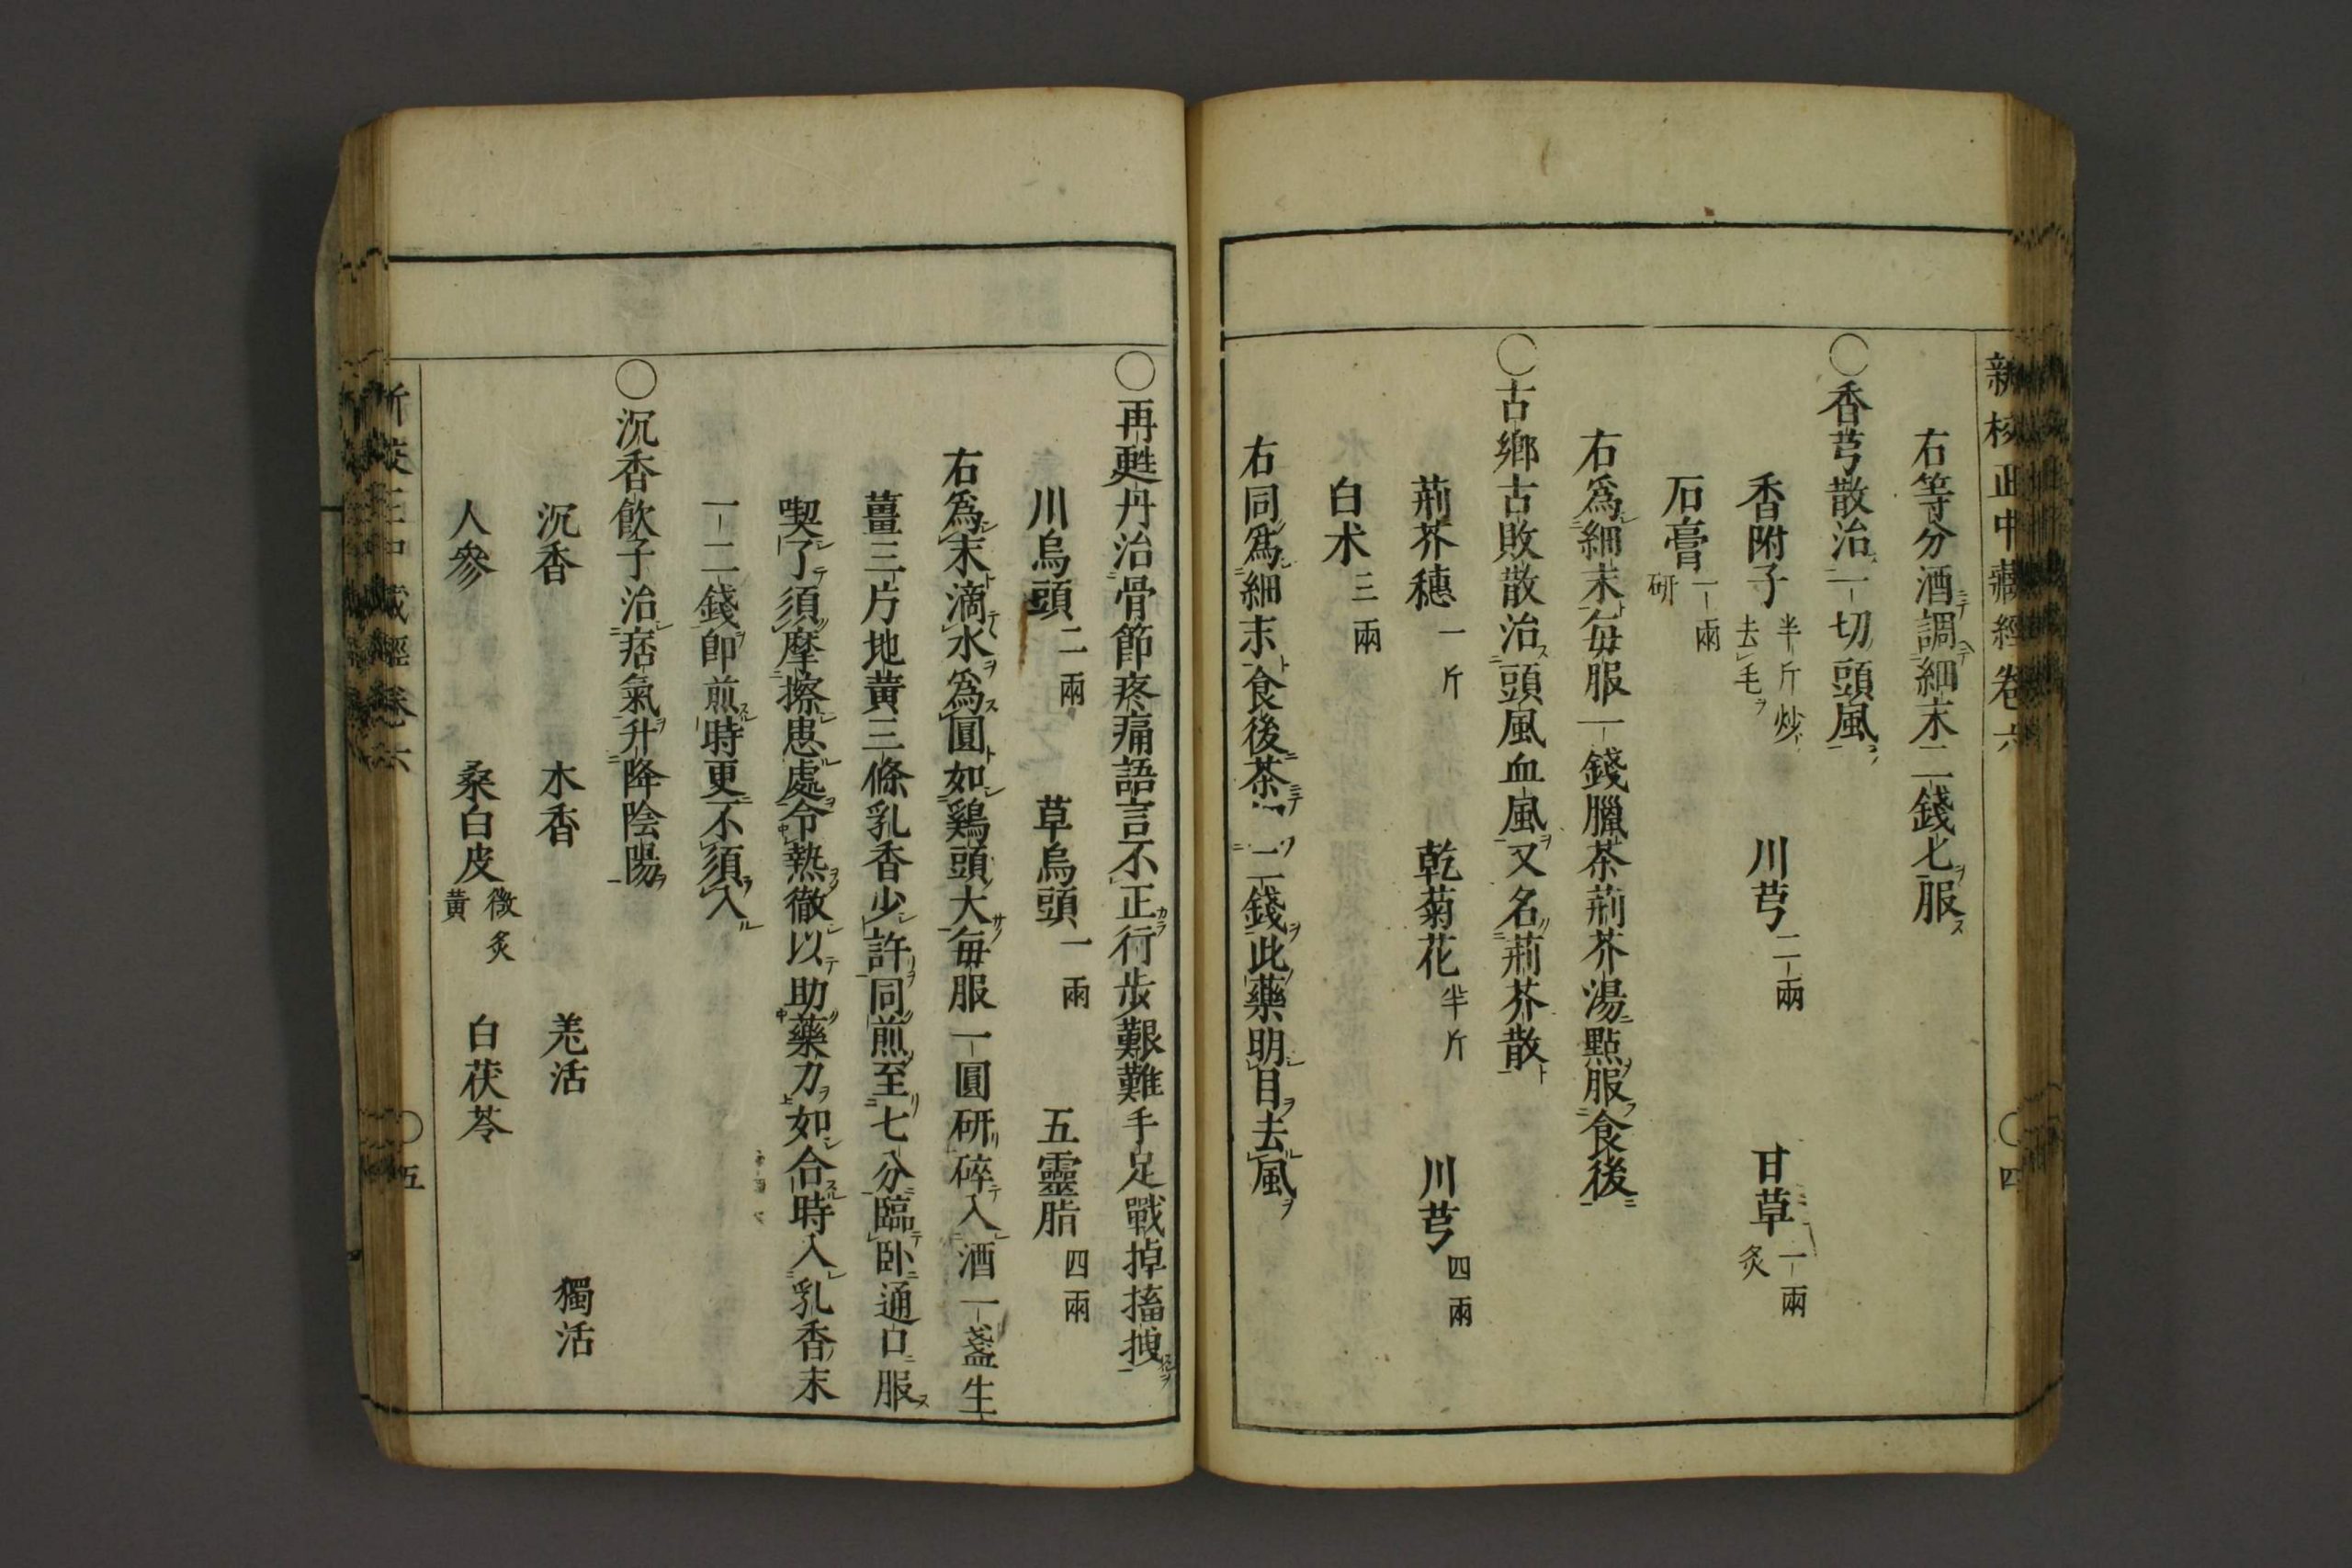 新校正中藏經卷六 〇四
右等分酒調細末二錢匕服
〇香芎散治一切頭風
香附子半斤炒去毛 川芎二兩 甘草一兩炙
石膏一兩研
右爲細末每服一錢臘茶荊芥湯點服食後
〇古鄉古敗散治頭風血風又名荊芥散
荊芥穗一斤 乾菊花半斤 川芎四兩
白朮三兩
右同爲細末食後茶二錢此藥明目去風
〇再甦丹治骨節疼痛語言不正行步艱難手足戰掉搐拽
川烏頭二兩 草烏頭一兩 五靈脂四兩
右爲末滴水爲圓如鷄頭大每服一圓研碎入酒一盞生
薑三片地黃三條乳香少許同煎至七分臨臥通口服
喫了須摩擦患處令熱徹以助藥力如合時入乳香末
一二錢卽煎時更不須入
〇沉香飲子治痞氣升降陰陽
沉香 木香 羌活 獨活
人參 桑白皮微炙黃 白茯苓
新校正中藏經卷六 〇五